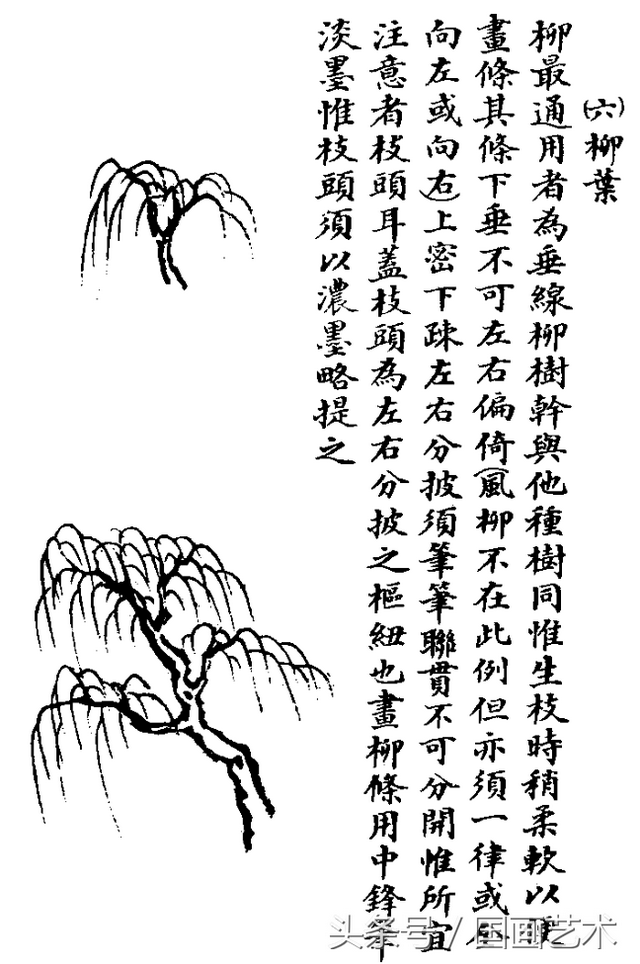 (六)柳葉
柳最通用者為垂線柳樹幹與他種樹同惟生枝時稍柔軟以
畫條其條下垂不可左右偏倚(風柳不在此例但亦須一律或
向左或向右)上密下疎左右分披須筆筆聯貫不可分開惟所宜
注意者枝頭耳蓋枝頭為左右分披之樞紐也畫柳條用中鋒筆
淡墨惟枝頭須以濃墨略提之
头条号/国画艺术